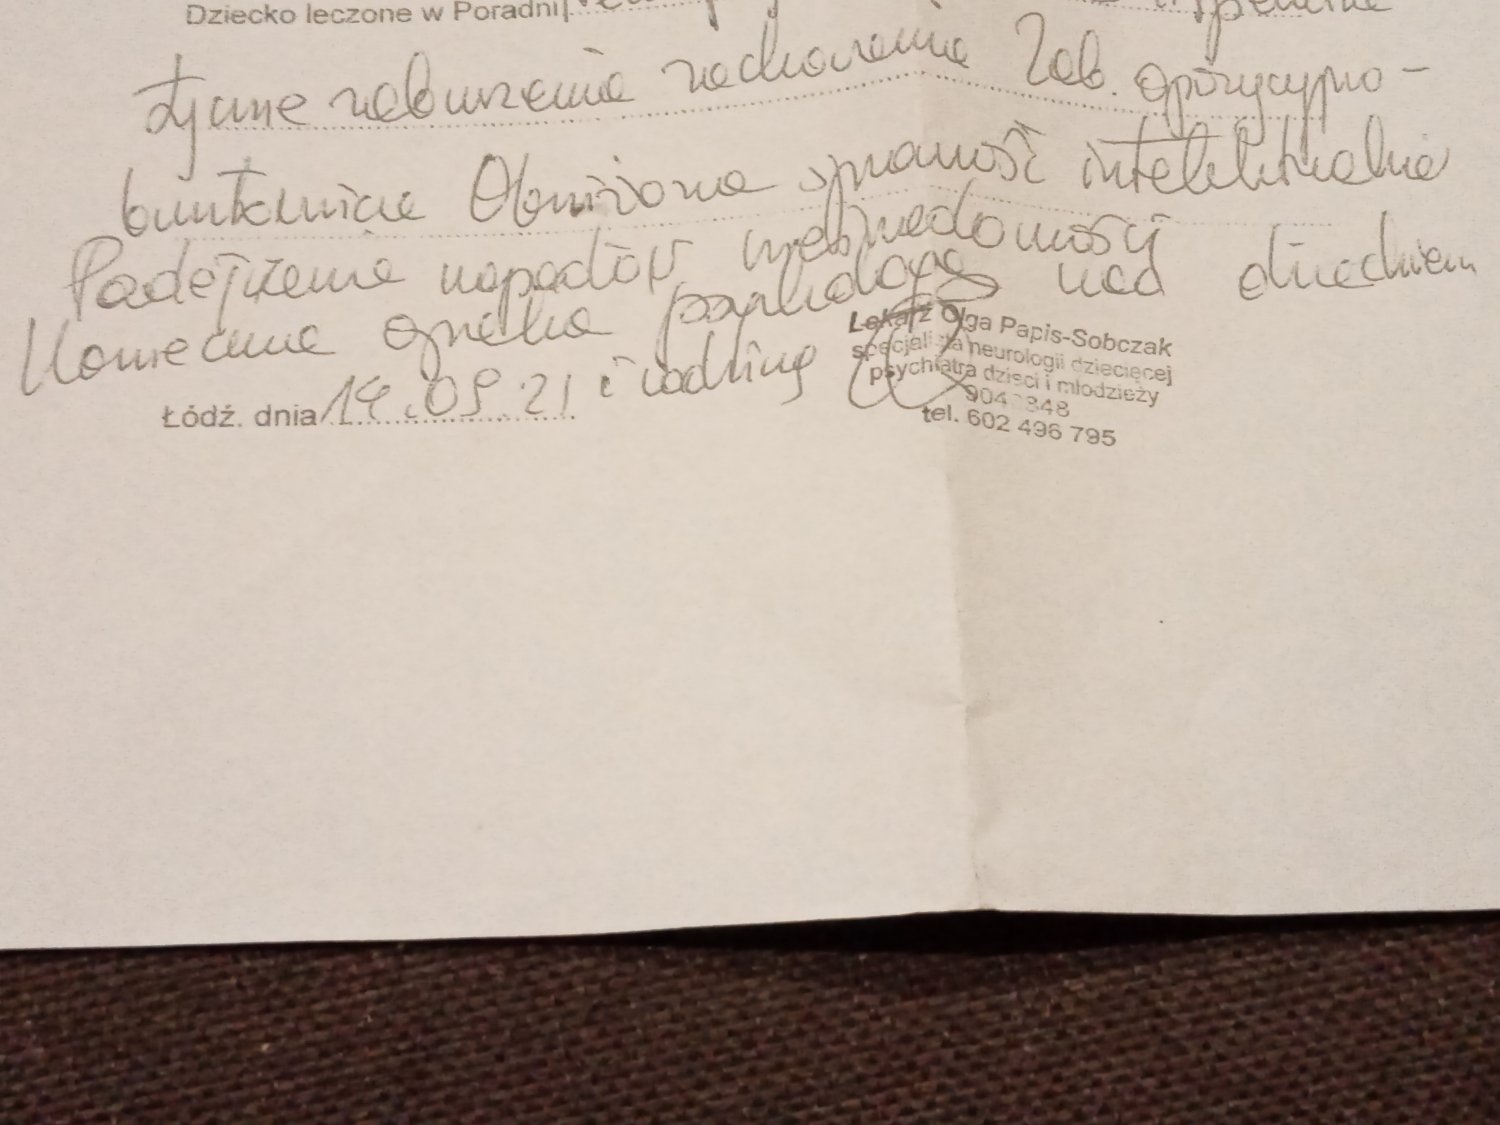 Dziecko leczone w Poradni
tyczne zaburzenia zachowania Zab. opozycyjno-
buntownicze Obniżona sprawność intelektualna
Podejrzenie napadów nieświadomości
Konieczna opieka psychologa nad dzieckiem
i rodziną
Łódź. dnia 14.09.21
Lekarz Olga Papis-Sobczak
specjalista neurologii dziecięcej
psychiatra dzieci i młodzieży
tel. 602 496 795